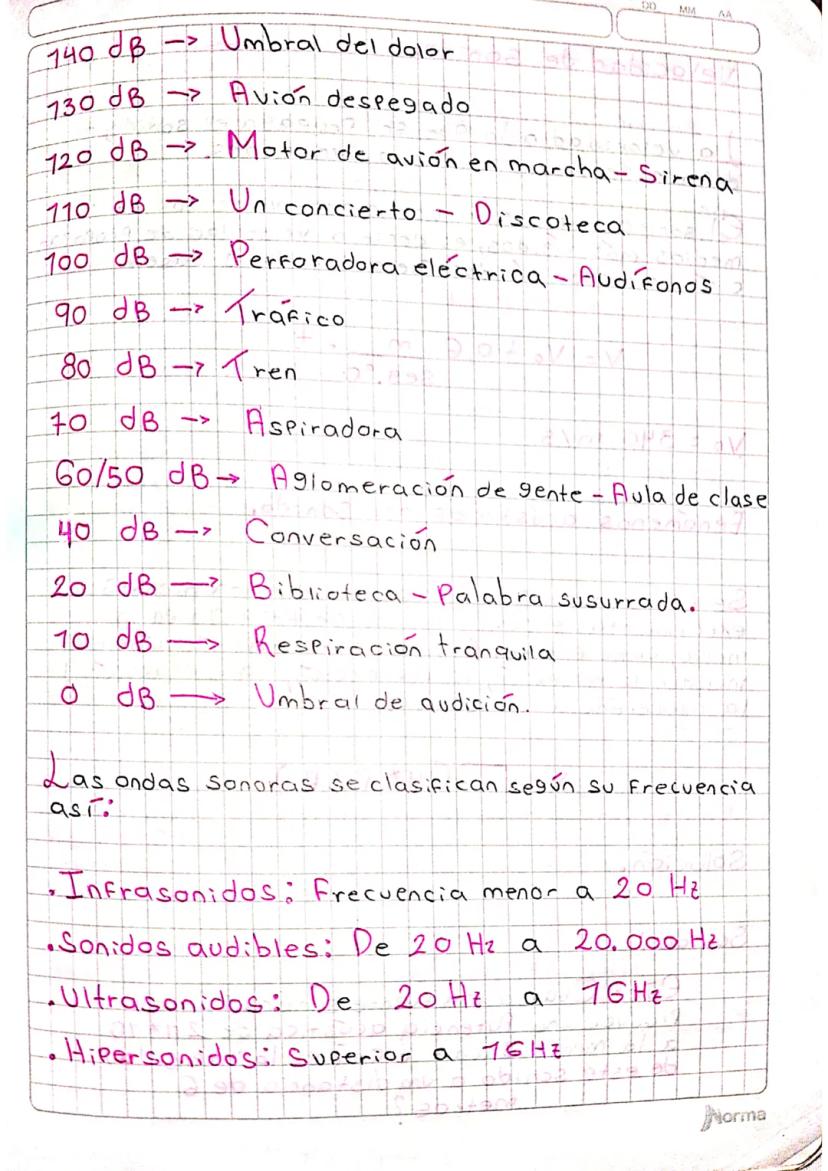 DD MM AA
140 dB → Umbral del dolor
130 dB → Avión despegado
120 dB → Motor de avión en marcha - Sirena
110 dB → Un concierto - Discoteca
100 dB → Perforadora eléctrica - Audífonos
90 dB → Tráfico
80 dB → Tren
70 dB → Aspiradora
60/50 dB → Aglomeración de gente - Aula de clase
40 dB → Conversación
20 dB → Biblioteca - Palabra susurrada.
10 dB → Respiración tranquila
0 dB → Umbral de audición.
Las ondas sonoras se clasifican según su frecuencia
así:
. Infrasonidos: Frecuencia menor a 20 Hz
. Sonidos audibles: De 20 Hz a 20.000 Hz
. Ultrasonidos: De 20 Hz a 1GHz
. Hipersonidos: Superior a 1GHz
Norma